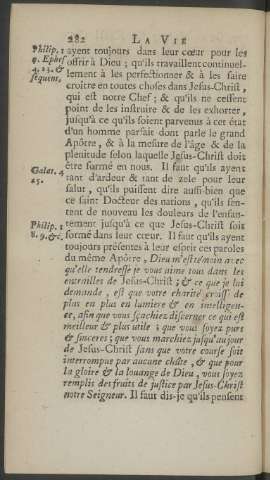 282 LA VIE
Philip. 1
9. Ephes
4. 23. &
sequent.
ayent toujours dans leur cœur pour les
offrir à Dieu ; qu'ils travaillent continuel-
lement à les perfectionner & à les faire
croître en toutes choses dans Jesus-Christ,
qui est notre Chef; & qu'ils ne cessent
point de les instruire & de les exhorter,
jusqu'à ce qu'ils soient parvenus à cet état
d'un homme parfait dont parle le grand
Apôtre, & à la mesure de l'âge & de la
plenitude selon laquelle Jesus-Christ doit
être formé en nous. Il faut qu'ils ayent
Galat. 4
25.
tant d'ardeur & tant de zele pour leur
salut, qu'ils puissent dire aussi-bien que
ce saint Docteur des nations, qu'ils sen-
tent de nouveau les douleurs de l'enfan-
tement jusqu'à ce que Jesus-Christ soit
Philip. 1
8. 9. &c.
formé dans leur cœur. Il faut qu'ils ayent
toujours présentes à leur esprit ces paroles
du même Apôtre, Dieu m'est témoin avec
qu'elle tendresse je vous aime tous dans les
entrailles de Jesus-Christ ; & ce que je lui
demande, est que votre charité croisse de
plus en plus en lumiere & en intelligen-
ce, afin que vous sçachiez discerner ce qui est
meilleur & plus utile ; que vous soyez purs
& sinceres ; que vous marchiez jusqu'au jour
de Jesus-Christ sans que votre course soit
interrompue par aucune chûte, & que pour
la gloire & la louange de Dieu, vous soyez
remplis des fruits de justice par Jesus-Christ
notre Seigneur. Il faut dis-je qu'ils pensent